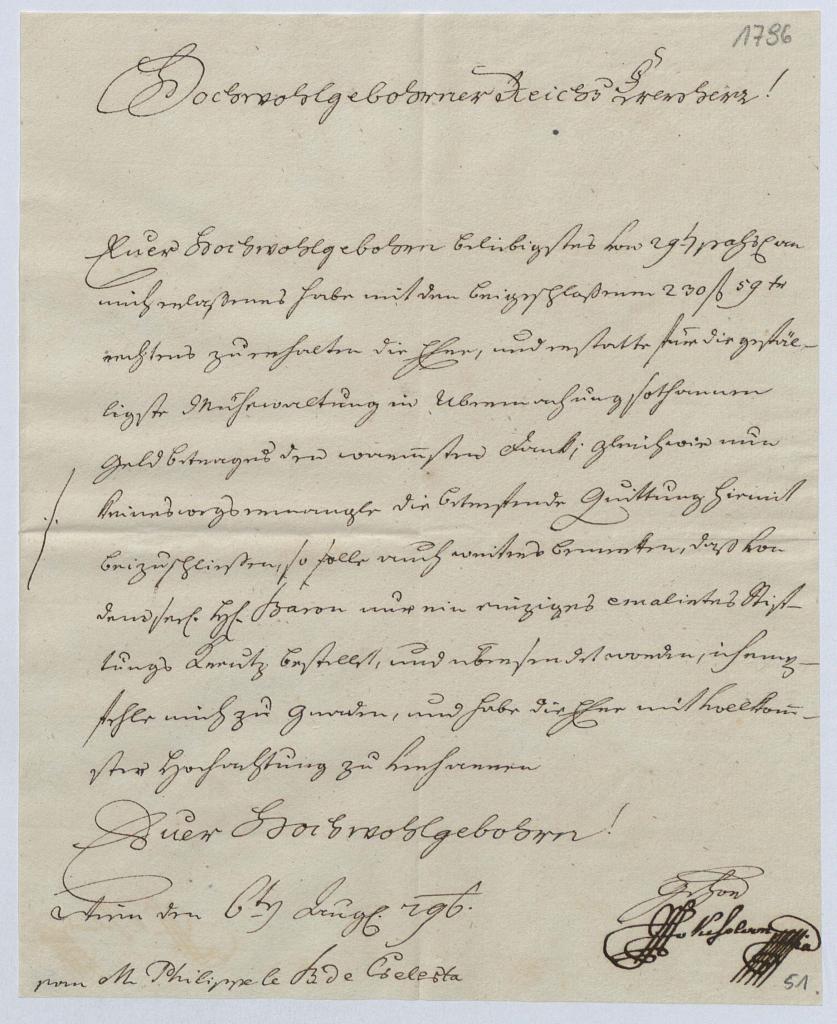 1796
Hochwohlgebohrner Reichs Freyherr!
Euer Hochwohlgebohren beliebigstes von 29ten passato an
mich erlaßenes habe mit den beigeschloßenen 230 f 59 kr
rechtens zu erhalten die Ehre, und erstatte für die gefäl-
ligste Mühewaltung in Ubermachung sothannen
Geldbetrages den warmsten Dank; gleichwie nun
keineswegs ermangle die betrefende Quittung hiemit
beizuschließen, so solle auch weiters bemerken, daß von
dem Baron nur ein einziges emalirtes Stif-
tungs Kreutz bestellt, und übersendet worden, ich emp-
fehle mich zu Gnaden, und habe die Ehre mit vollkom̅-
ster Hochachtung zu beharren
Euer Hochwohlgebohren!
Wien den 6ten Aug. 796.
gehor
M Philippe le B de Cselesta
51